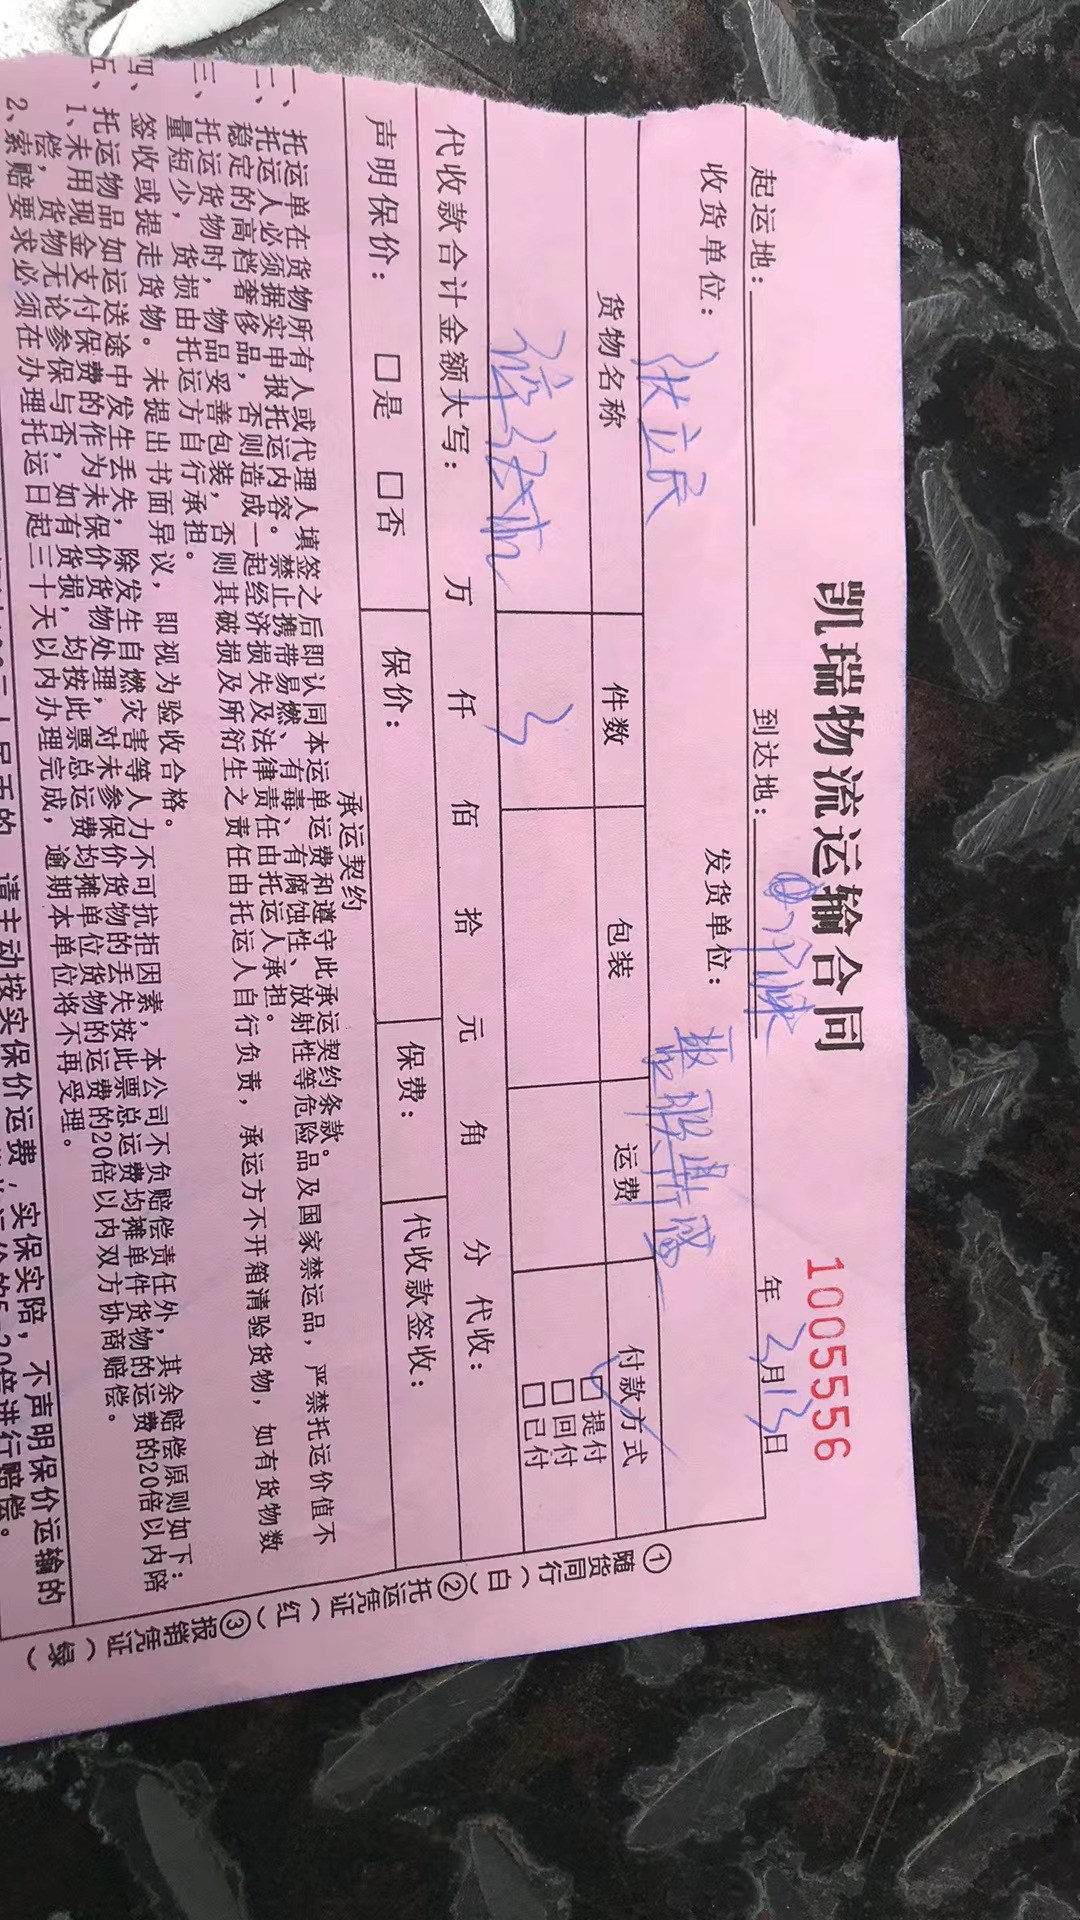 凯瑞物流运输合同
1005556
起运地： 到达地： 年 3月13日
收货单位：张立民 发货单位：
货物名称 件数 包装 运费 付款方式
3
□提付
□回付
□已付
代收款合计金额大写： 万 仟 佰 拾 元 角 分 代收：
声明保价： □是 □否 保价： 保费： 代收款签收：
承运契约
一、托运单在货物所有人或代理人填签之后即认同本运单运费和遵守此承运契约条款。
二、托运人必须据实申报托运内容。禁止携带易燃、有毒、有腐蚀性、放射性等危险品及国家禁运品，严禁托运价值不
稳定的高档奢侈品，否则造成一起经济损失及法律责任由托运人承担。
三、托运货物时，物品妥善包装，否则其破损及所衍生之责任由托运人自行负责，承运方不开箱清验货物，如有货物数
量短少，货损由托运方自行承担。
四、签收或提走货物。未提出书面异议，即视为验收合格。
五、托运物品如运送途中发生丢失，除发生自燃灾害等人力不可抗拒因素，本公司不负赔偿责任外，其余赔偿原则如下：
1、未用现金支付保费的作为未保价货物处理，对未参保价货物的丢失按此票总运费均摊单件货物的运费的20倍以内陪
偿，货物无论参保与否，如有货损，均按此票总运费均摊单位货物的运费的20倍以内双方协商赔偿。
2、索赔要求必须在办理托运日起三十天以内办理完成，逾期本单位将不再受理。
请主动按实保价运费，实保实陪，不声明保价运输的
20倍进行赔偿。
①随货同行（白）②托运凭证（红）③报销凭证（绿）